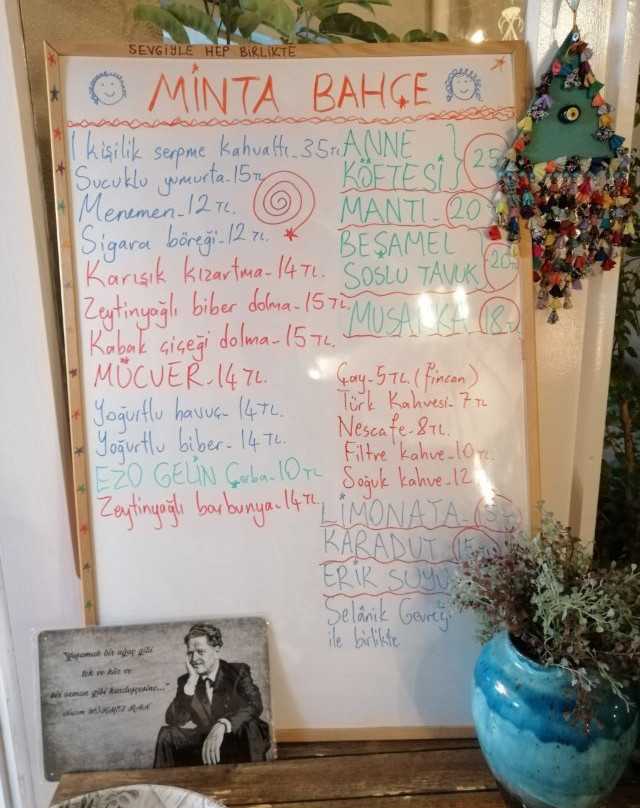 SEVGİYLE HEP BİRLİKTE
MİNTA BAHÇE
1 kişilik serpme kahvaltı_35TL
Sucuklu yumurta_15TL
Menemen_12TL.
Sigara böreği_12TL.
Karışık kızartma_14TL.
Zeytinyağlı biber dolma_15TL.
Kabak çiçeği dolma_15TL.
MÜCVER_14TL.
Yoğurtlu havuç_14TL
Yoğurtlu biber_14TL.
EZO GELİN Çorba_10TL
Zeytinyağlı barbunya_14TL.
ANNE
KÖFTESİ } 25
MANTI_20
BEŞAMEL
SOSLU TAVUK } 20
MUSAKKA 18
Çay_5TL.(fincan)
Türk Kahvesi_7TL
Nescafe_8TL.
Filtre kahve_10TL
Soğuk kahve_12
LİMONATA
KARADUT 15
ERİK SUYU
Selânik Gevreği
ile birlikte
"Yaşamak bir ağaç gibi
tek ve hür ve
bir orman gibi kardeşçesine..."
Nazım HİKMET RAN